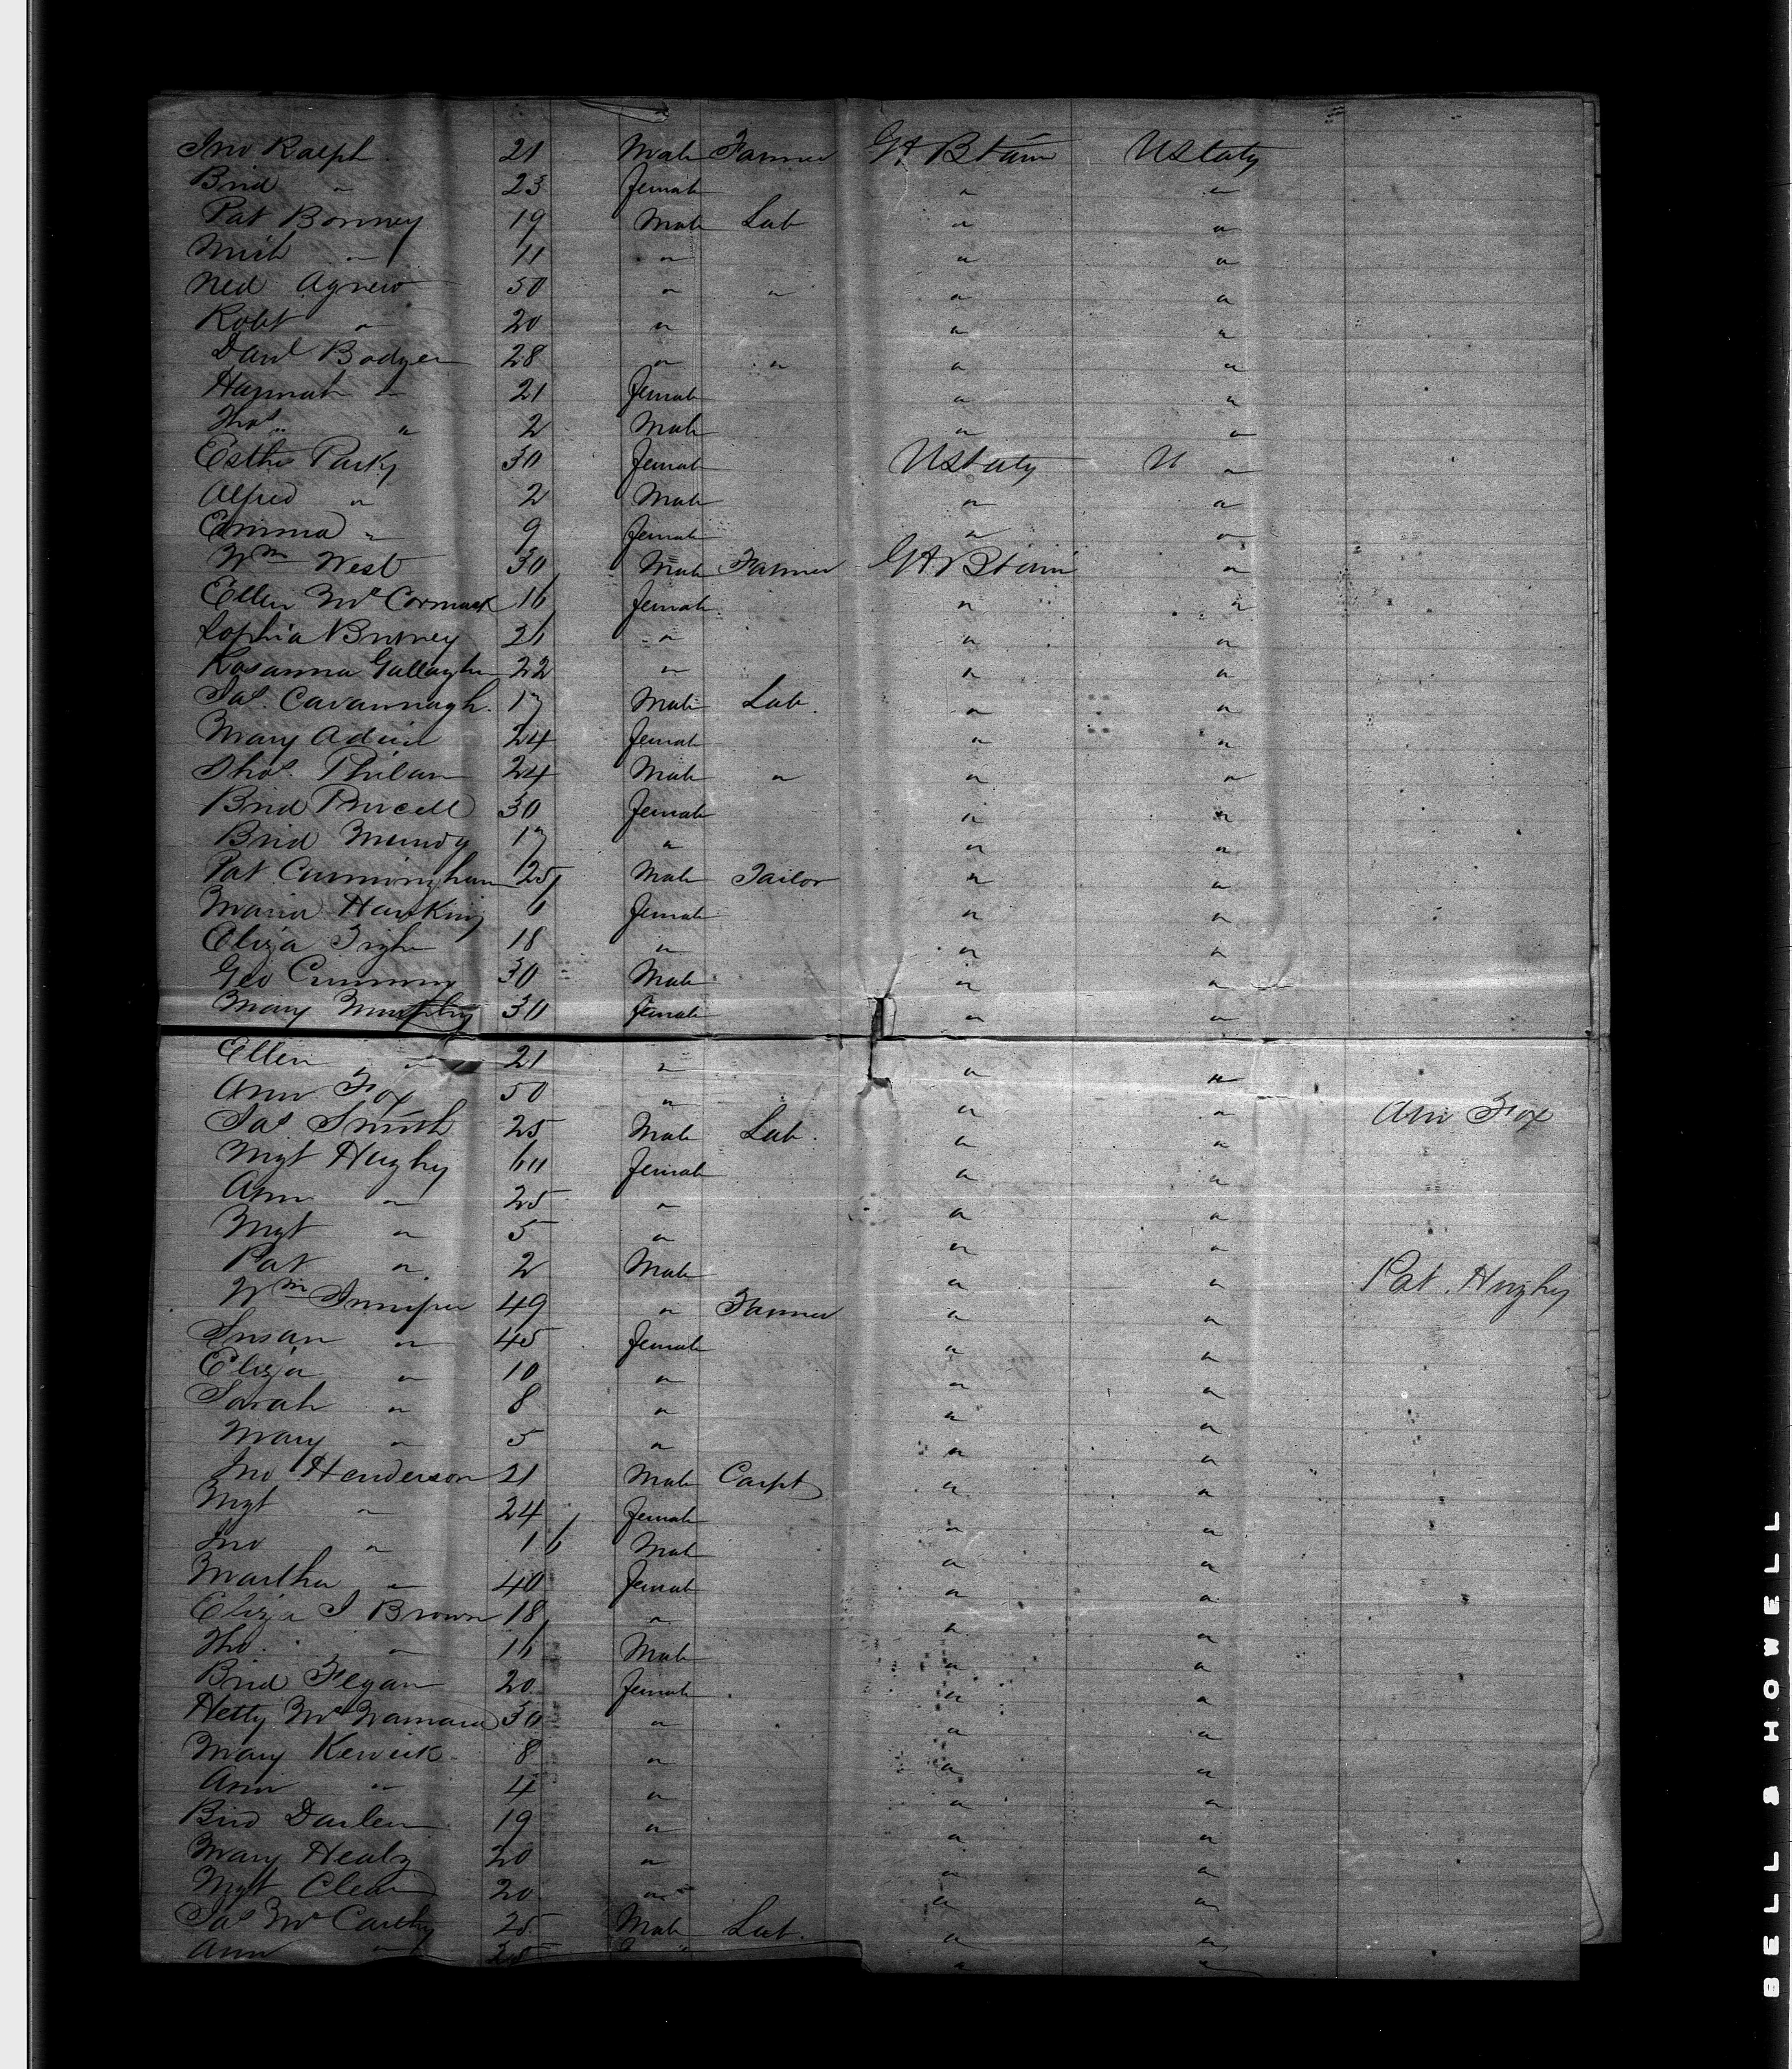 Jno Ralph 21 Male Farmer Gt Btain UStates
Brid " 23 female " "
Pat Bonney 19 Male Lab " "
Mich " 11 " " "
Ned Agnew 50 " " " "
Robt " 20 " " "
Danl Bodger 28 " " " "
Hannah " 21 female " "
Thos " 2 Male " "
Esther Parks 30 female UStates U "
Alfred " 2 Male " "
Emma " 9 female " "
Wm West 30 Male Farmer Gt Btain "
Ellen McCormack 16 female " "
Sophia Burney 26 " " "
Rosanna Gallagher 22 " " "
Jas. Cavannagh. 17 Male Lab. " "
Mary 24 female " "
Thos. Philan 24 Male " " "
Brid Purcell 30 female " "
Brid Mundy 17 " " "
Pat Cunningham 25 Male Tailor " "
Maria Hawkins 6 female " "
Eliza Tighe 18 " " "
Geo 30 Male " "
Mary Murphy 30 female " "
Ellen " 21 " " "
Ann Fox 50 " " " Ann Fox
Jas Smith 25 Male Lab. " "
Mgt Hughes 60 female " "
Ann " 25 " " "
Mgt " 5 " " "
Pat " 2 Male " " Pat. Hughes
Wm Juniper 49 " Farmer " "
Susan " 45 female " "
Eliza " 10 " " "
Sarah " 8 " " "
Mary " 5 " " "
Jno Henderson 21 Male Carpt " "
Mgt " 24 female " "
Jno " 1 6 Male " "
Martha " 40 female " "
Eliza J Brown 18 " " "
Tho. " 16 Male " "
Brid Fegan 20 female " "
Hetty McNamara 30 " " "
Mary Kewick 8 " " "
Ann " 4 " " "
Brid Darlen 19 " " "
Mary Healy 20 " " "
Mgt 20 " " "
Jas McCarthy 25 Male Lab. " "
Ann " 25 " "
BELL & HOWELL